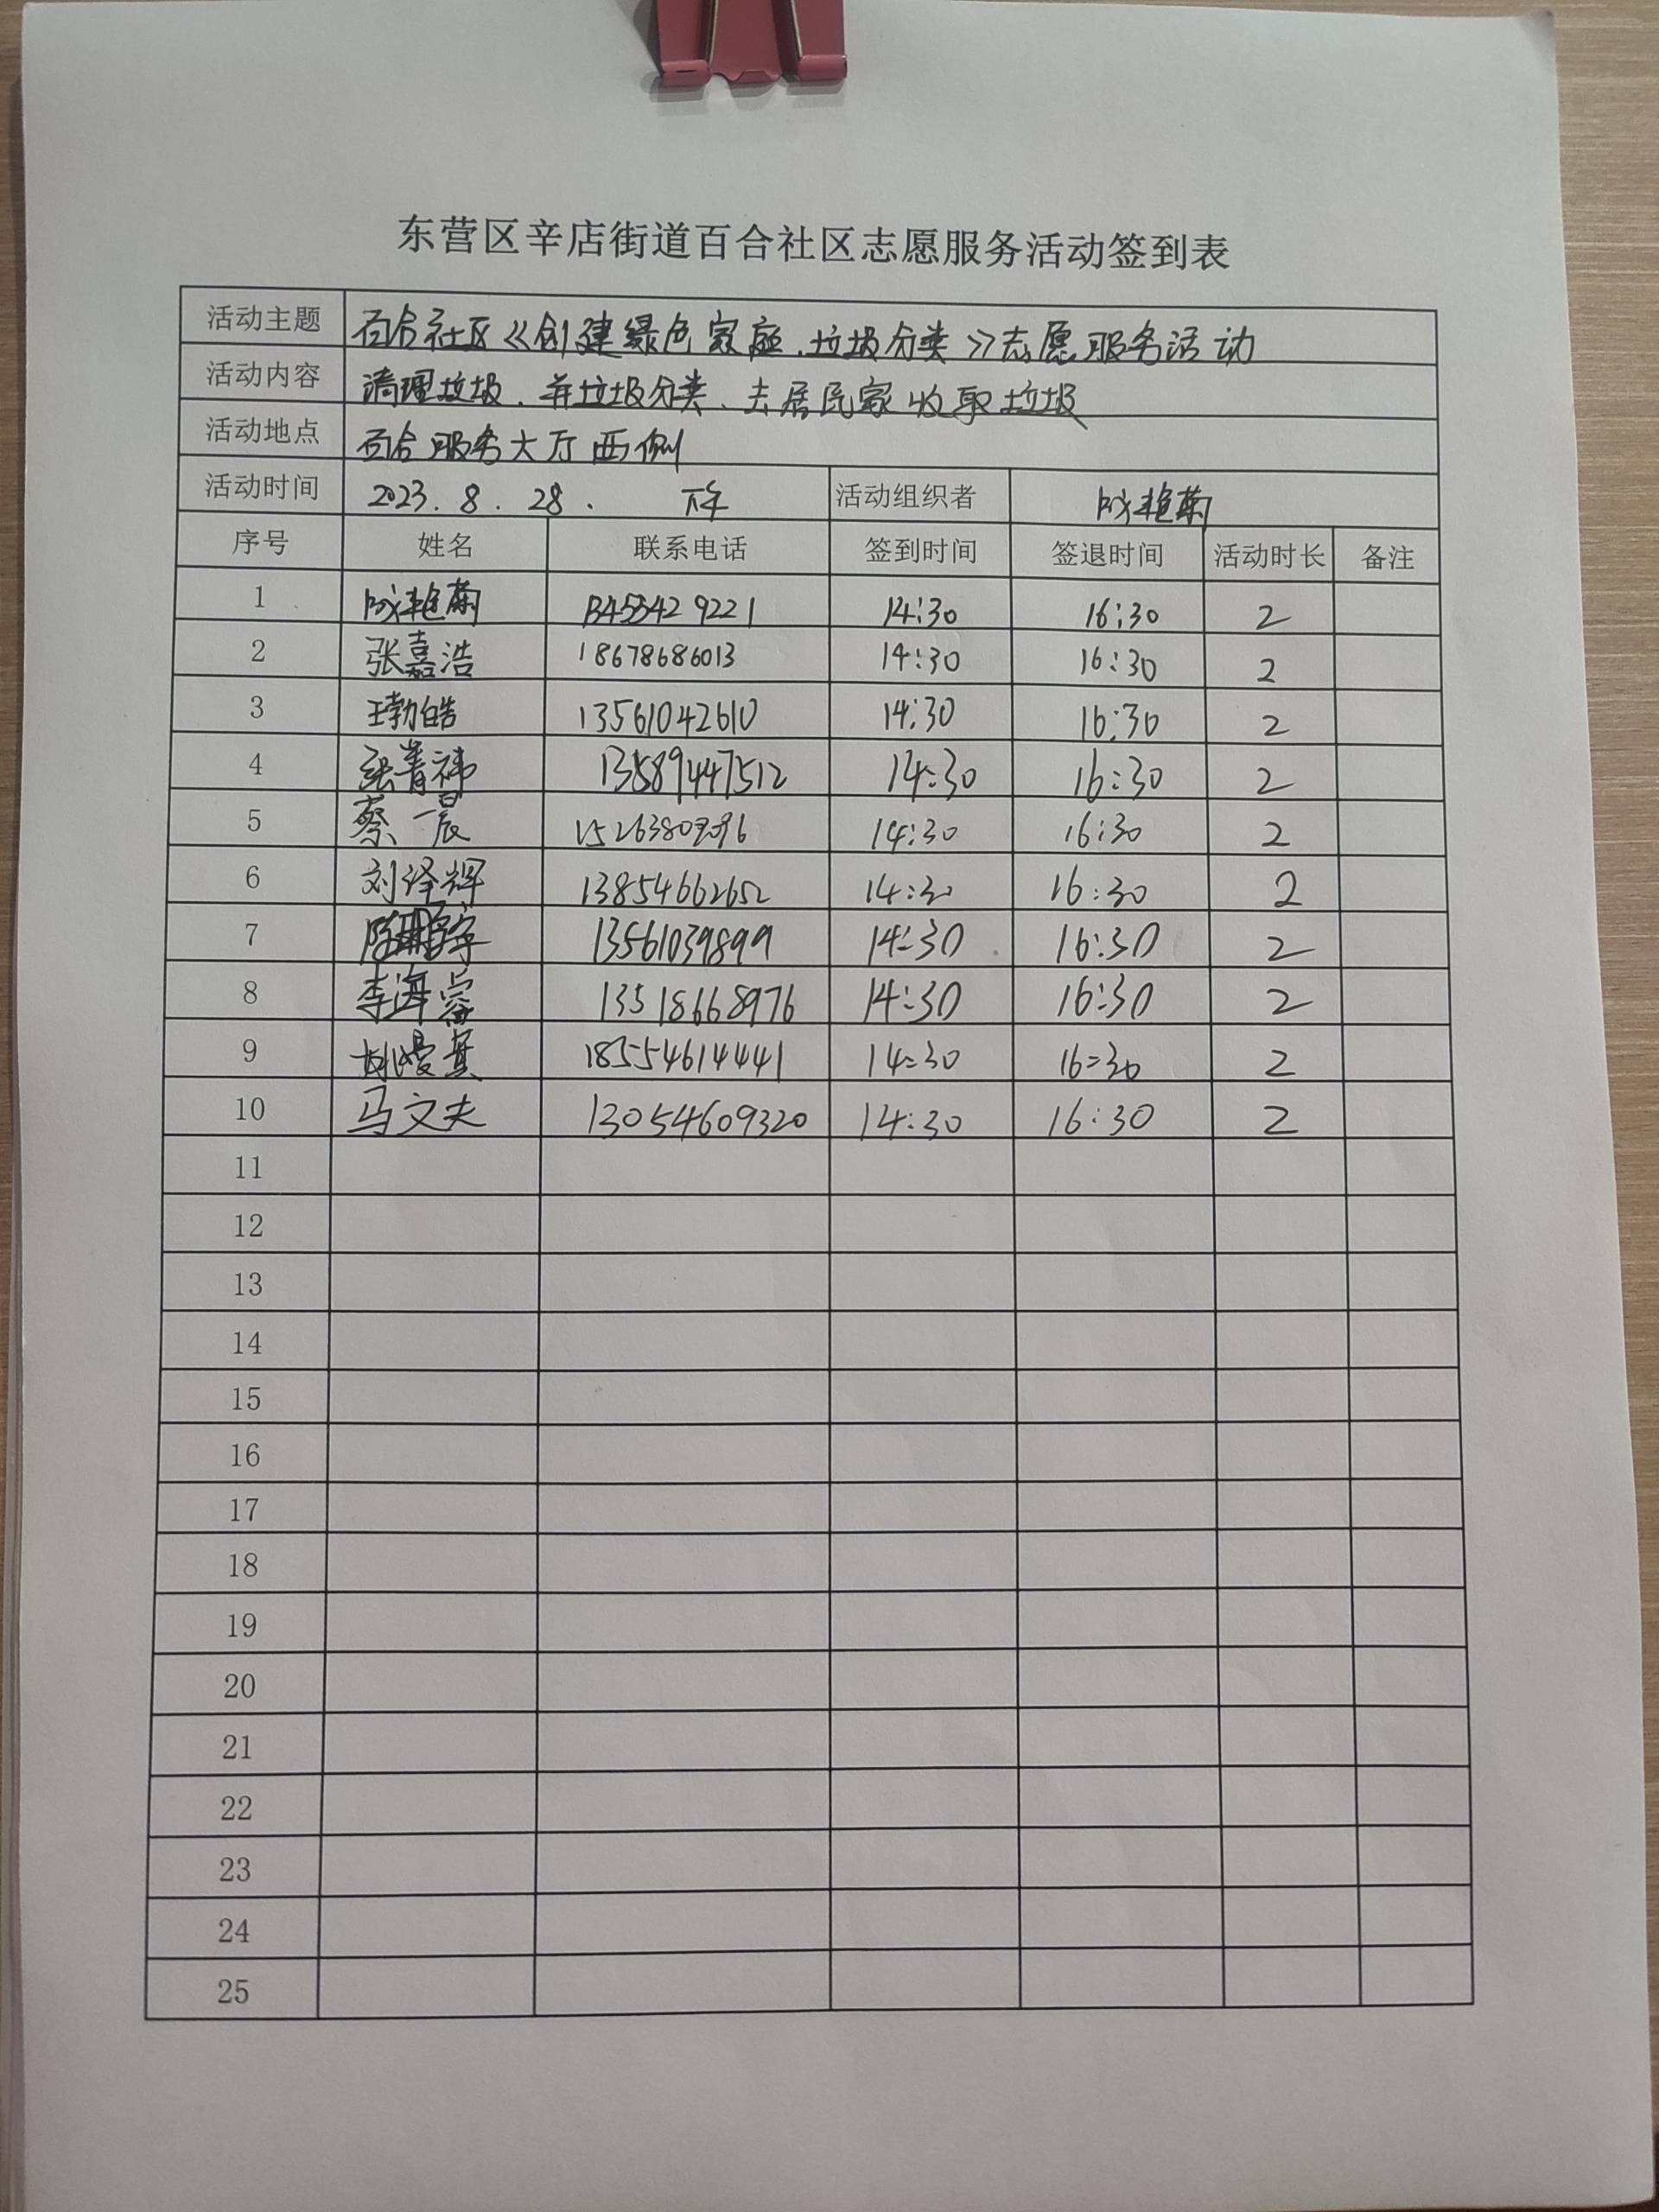 东营区辛店街道百合社区志愿服务活动签到表
活动主题 百合社区《创建绿色家庭、垃圾分类》志愿服务活动
活动内容 清理垃圾、并垃圾分类、去居民家收取垃圾
活动地点 百合服务大厅西侧
活动时间 2023.8.28. 下午 活动组织者 艳菊
序号 姓名 联系电话 签到时间 签退时间 活动时长 备注
1 艳菊 13455429221 14:30 16:30 2
2 张嘉浩 18678686013 14:30 16:30 2
3 王勃皓 13561042610 14:30 16:30 2
4 张菁祎 13589447512 14:30 16:30 2
5 蔡一晨 14:30 16:30 2
6 刘泽辉 13854662652 14:30 16:30 2
7 13561039899 14:30 16:30 2
8 李海 13518668976 14:30 16:30 2
9 18554614441 14:30 16:30 2
10 马文夫 13054609320 14:30 16:30 2
11
12
13
14
15
16
17
18
19
20
21
22
23
24
25